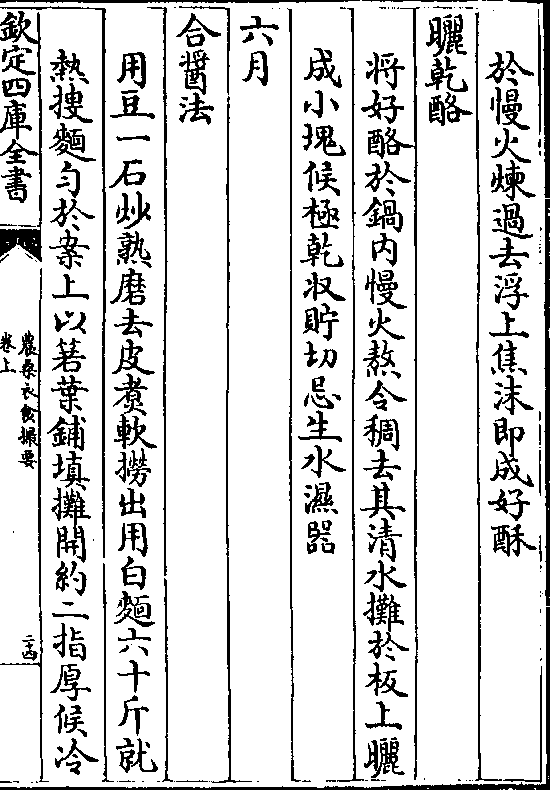 於慢火煉過去浮上焦沫即成好酥
曬乾酪
将好酪於鍋内慢火熬令稠去其清水攤於板上曬
成小塊候極乾収貯切忌生水濕器
六月
合醬法
用豆一石炒熟磨去皮煮軟撈出用白麵六十斤就
熱搜麵匀於案上以箬葉鋪填攤開約二指厚候冷
欽定四庫全書
農桑衣食撮要
卷上
二十四